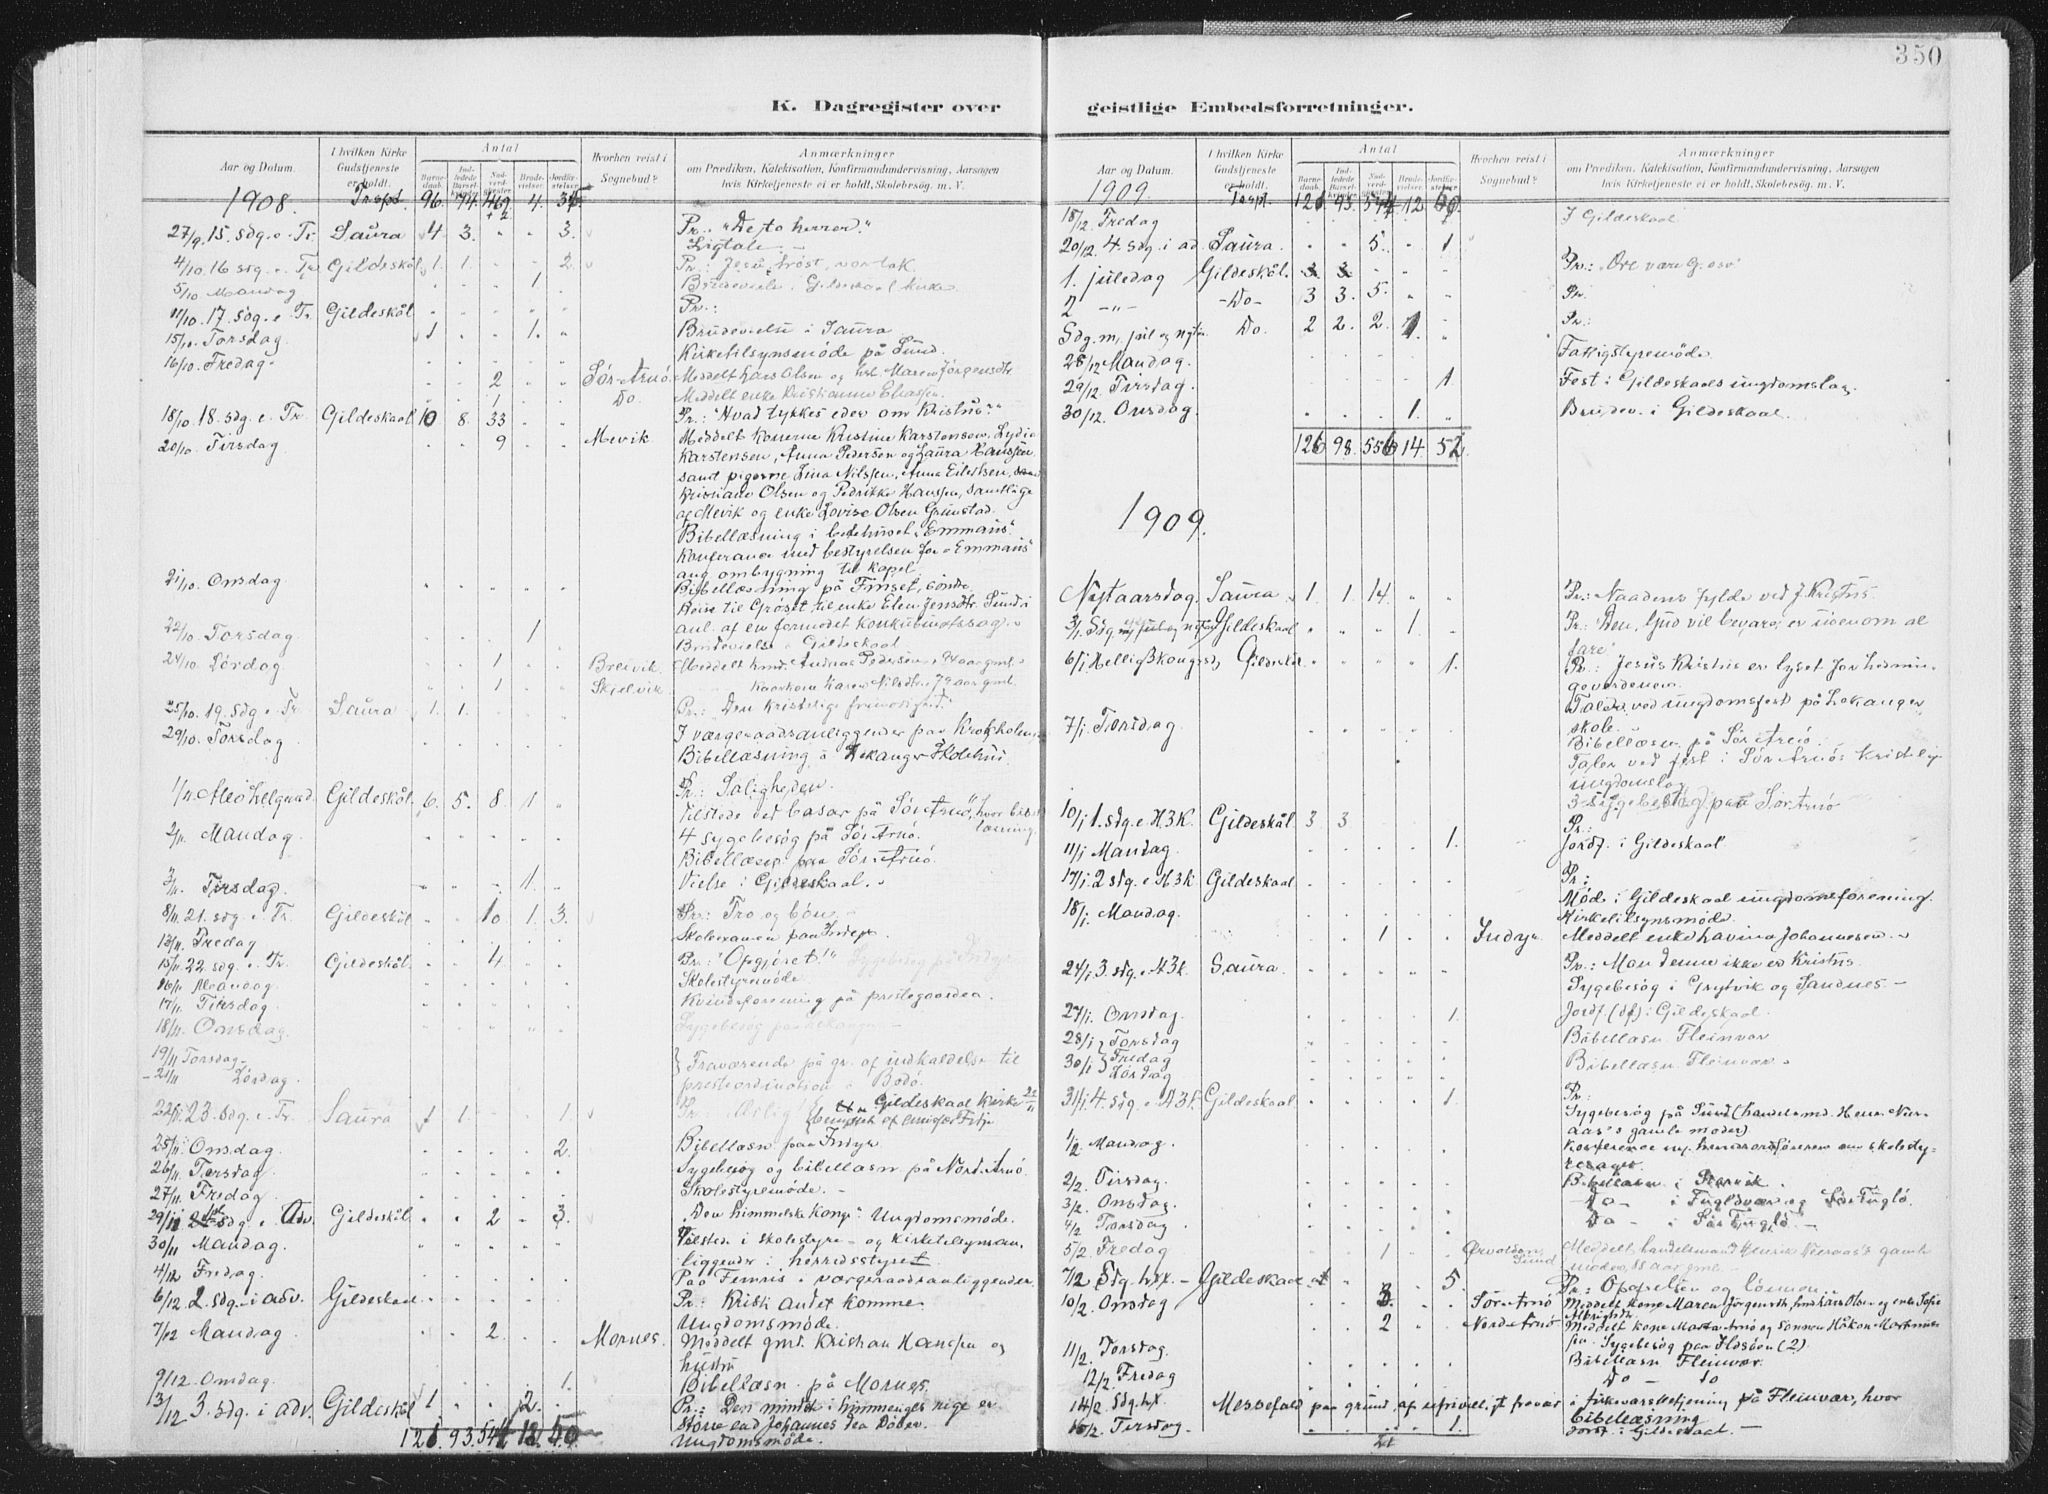 350
K. Dagregister over geistlige Embedsforretninger.
Aar og Datum. I hvilken Kirke Gudstjeneste er holdt. Antal Barnedaab. Indledede Barselkvinder. Nadverdgjester Brudevielser. Jordfæstelser. Hvorhen reist i Sognebud? Anmærkninger om Prædiken, Katekisation, Konfirmandundervisning, Aarsagen hvis Kirketjeneste ei er holdt, Skolebesøg. m. V.
1908. Trspt. 96. 94. 469 + 2 4. 35
27/9. 15. sdg. e. Tr. Saura 4. 3. " " 3. Pr.: "De to herrer."
Ligtale
4/10. 16 sdg. e. Tr Gildeskål 1. 1. 2. Pr.: Jesu trøst, vor tak.
5/10 Mandag 1 Brudevielse i Gildeskaal kirke
11/10. 17. sdg. e. Tr Gildeskål Pr.:
15/10. Torsdag 1 1. Brudevielse i Saura
16/10. Fredag. Kirketilsynsmöde på Sund.
2 Sör-Arnö. Meddelt Lars Olsen og hst. Maren Jörgensdtr
1 Do. Meddelt enke Kristianne Eliassen.
18/10. 18. sdg. e. Tr. Gildeskaal 10 8. 33 Pr.: "Hvad tykkes eder om Kristus?"
20/10. Tirsdag 9 Mevik Meddelt konerne Kristine Karstensen, Lydia
Karstensen, Anna Pedersen og Laura Hanssen
samt pigerne Lina Nilssen, Anna Eilertsen,
Kristiane Olsen og Pedrikke Hanssen, samtlige
af Mevik og enke Lovise Olsen Grimstad.
Bibellæsning i bedehuset "Emmaus"
Konferance med bestyrelsen for "Emmaus"
ang. ombygning til kapel.
21/10. Onsdag Bibellæsning på Finset, söndre
Reise til Gröset til enke Elen Jensdtr. Sund i
anl. af en formodet konkubinatssag.
22/10. Torsdag 1 Brudevielse i Gildeskaal
24/10. Lördag 1 Breivik. Meddelt hmd. Andreas Pedersen, 94 aar gml.
1 Skjelvik. Kaarkone Karen Nilsdtr. 79 aar gml.
25/10. 19. sdg e. Tr. Saura 1. 1. Pr.: Den kristelige frimodighed.
29/10. Torsdag I værgeraadsanliggender paa Krokholmen
Bibellæsning i Lekanger skolehus.
1/11. Alleshelgensd. Gildeskål 6. 5. 8. 1 Pr.: Saligheden.
Tilstede ved basar på Sör Arnö, hvor bibel
læsning
2/11. Mandag 4 sygebesög på Sör Arnö.
Bibellæsn. paa Sör-Arnö.
3/11. Tirsdag. 1. Vielse i Gildeskaal.
8/11. 21. sdg. e. Tr. Gildeskål 10 1. 3. Pr.: Tro og bön
13/11. Fredag Skoleexamen paa Inder
15/11. 22. sdg. e. Tr. Gildeskål 4. Pr.: "Opgjöret!" Sygebesög på Indyr
16/11 Mandag Skolestyremöde.
17/11. Tirsdag Kvindeforening på prestegaarden.
18/11. Onsdag. Sygebesög paa Lekanger
19/11 Torsdag - } Fraværende på gr. af indkaldelse til
- 21/11 Lördag. presteordination i Bodö.
22/11. 23. sdg. e. Tr. Saura 1 1. 1. Pr. Gildeskaal kirke 22/11
benyttet af
25/11. Onsdag. 2. Bibellæsn paa Indyr
26/11. Torsdag Sygebesög og bibellæsn på Nord-Arnö.
27/11. Fredag Skolestyremöde. -
29/11 1ste sdg. e. Adv. Gildeskål 2 3. "Den himmelske konge". Ungdomsmöde.
30/11 Mandag. Tilsted i skolestyre- og kirketilsynsan.
liggender i herredsstyret
4/12 Fredag. Paa Femris i værgeraadsanliggender.
6/12. 2. sdg. i adv. Gildeskaal Pr.: Kristi andet komme.
7/12 Mandag 2. Mornes. Ungdomsmöde.
Meddelt gmd. Kristian Hanssen og
hustru
9/12 Onsdag. 1. Bibellæsn. på Mornes.
13/12 3. sdg. i adv. Gildeskål 1 2. Pr.: Den mindste i himmeriges rige er
större end Johannes den Döber.
121. 93. 544 12. 50 Ungdomsmöde.
1909. Trspt. 121 93. 544 12 50.
18/12. Fredag I Gildeskaal
20/12. 4. sdg. i ad. Saura. 5. 1
1. juledag Gildeskål. 3 3. Pr.: "Ære være G. osv."
2 -"- -Do- 3 3. 5. Pr.
Sdg. m. jul og nytår Do. 2 2. 2. 1. Pr.:
28/12 Mandag. Fattigstyremöde.
29/12. Tirsdag. 1. Fest i Gildeskaals ungdomslag.
30/12. Onsdag 1 Brudev. i Gildeskaal.
126 98. 556 14. 52
1909.
Nytaarsdag. Saura 1. 1. 14. Pr.: Naadens fylde ved J. Kristus.
3/1. Sdg. m. jul og nytår Gildeskaal 1. Pr.: "Den, Gud vil bevare, er udenom al
fare"
6/1. Hellig 3 kongersd. Gildeskål. 1. Pr.: Jesus Kristus er lyset for hednin-
geverdenen.
7/1. Torsdag Taler ved ungdomsfest på Lekanger
skole.
Bibellæsn. på Sör Arnö.
Taler ved fest i Sör Arnös kristelig
ungdomslag
3 sygebesög paa Sör Arnö
10/1. 1. sdg. e. H. 3 K. Gildeskål 3 3 Pr.:
11/1 Mandag. 1. Jordf. i Gildeskaal
17/1. 2 sdg. e H 3 k Gildeskaal Pr.:
18/1. Mandag. Möde i Gildeskaal ungdomsforening.
Kirketilsynsmöde.
1 Indyr. Meddelt enke Lavina Johannesen.
24/1. 3. sdg. e. H 3 k. Saura. Pr.: Mon denne ikke er Kristus.
Sygebesög i Grytvik og Sandnes. -
27/1. Onsdag. 1. Jordf. (df.) i Gildeskaal
28/1 } Torsdag Bibellæsn Fleinvær
30/1 } Fredag Bibellæsn. Fleinvær
Lördag
31/1. 4. sdg. e. H 3 k. Gildeskaal 1. Pr.:
Sygebesög på Sund (handelsmd. Henr.
gamle moder)
1/2. Mandag. Konference m. herredsordföreren om skolesty-
resager.
2/2. Tirsdag. Bibellæsn. i
3/2. Onsdag. - Do - i Fuglövær og Sör Fuglö.
4/2 Torsdag Do - i Sör Fuglö. -
5/2. Fredag 1 Meddelt handelsmand Henrik gamle
Sund moder, 88 aar gml. -
7/2 Sdg. hlx. - Gildeskaal 5. Pr.: Opofrelsen og lönnen
10/2. Onsdag 3. Sör-Arnö Meddelt kone Maren Jörgensdtr, hmd Lars Olsen og enke Sofie
Albrigtsdtr.
2 Nord-Arnö Meddelt kone Marta Arnö og sönnen Håkon Martinus
sen. Sygebesög paa (2).
11/2. Torsdag. Bibellæsn Fleinvær.
12/2. Fredag Do - Do
14/2. Sdg. hx. Messefald paa grund af ufrivilligt fravær i Fleinvær, hvor
bibellæsning
16/2. Tirsdag. 1. Jordf. i Gildeskaal. -